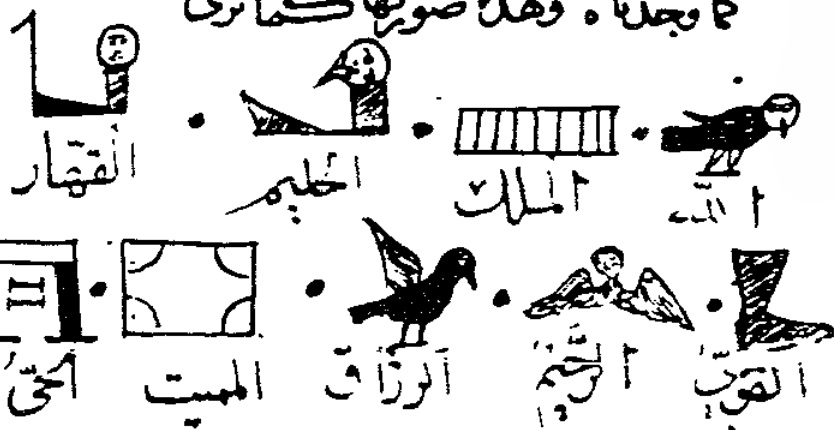 كما وجدناه وهذه صورتها كما ترى
اللّه الملك الحليم القهّار
القويّ الرّحيم الرزّاق المميت الحيّ